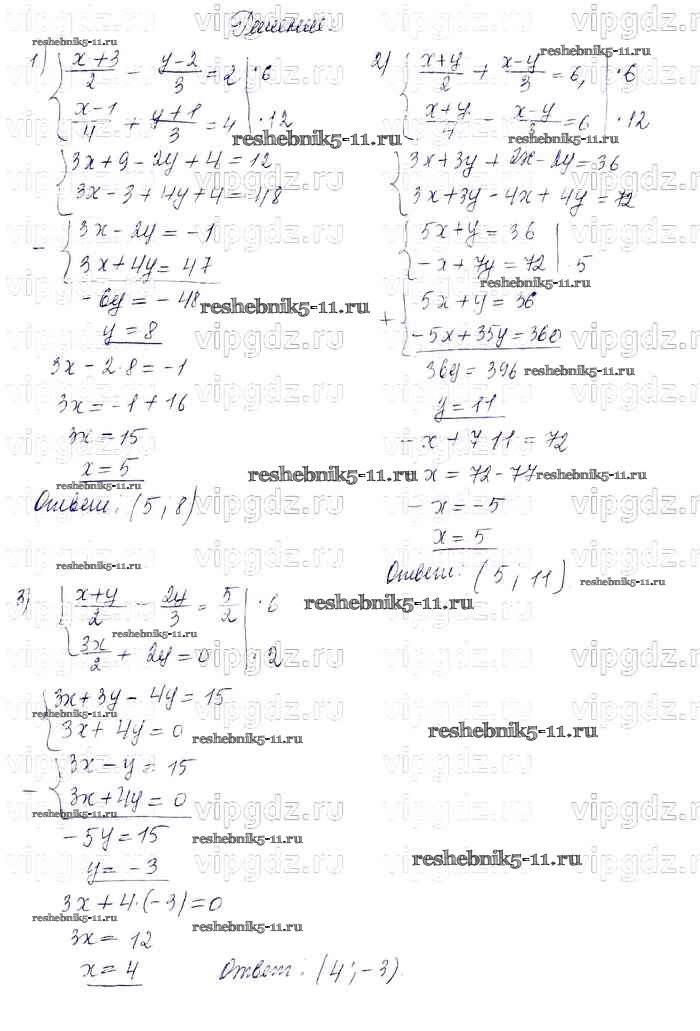 Решение:
1) { (x+3)/2 - (y-2)/3 = 2 | ·6
(x-1)/4 + (y+1)/3 = 4 | ·12
{ 3x+9-2y+4=12
3x-3+4y+4=48
- { 3x-2y=-1
3x+4y=47
-6y=-48
y=8
3x-2·8=-1
3x=-1+16
3x=15
x=5
Ответ: (5; 8)
2) { (x+y)/2 + (x-y)/3 = 6, | ·6
(x+y)/4 - (x-y)/3 = 6 | ·12
{ 3x+3y+2x-2y=36
3x+3y-4x+4y=72
{ 5x+y=36
-x+7y=72 | ·5
+ { 5x+y=36
-5x+35y=360
36y=396
y=11
-x+7·11=72
-x=72-77
-x=-5
x=5
Ответ: (5; 11)
3) { (x+y)/2 - 2y/3 = 5/2 | ·6
3x/2 + 2y=0 | ·2
{ 3x+3y-4y=15
3x+4y=0
- { 3x-y=15
3x+4y=0
-5y=15
y=-3
3x+4·(-3)=0
3x=12
x=4
Ответ: (4; -3).
reshebnik5-11.ru
vipgdz.ru